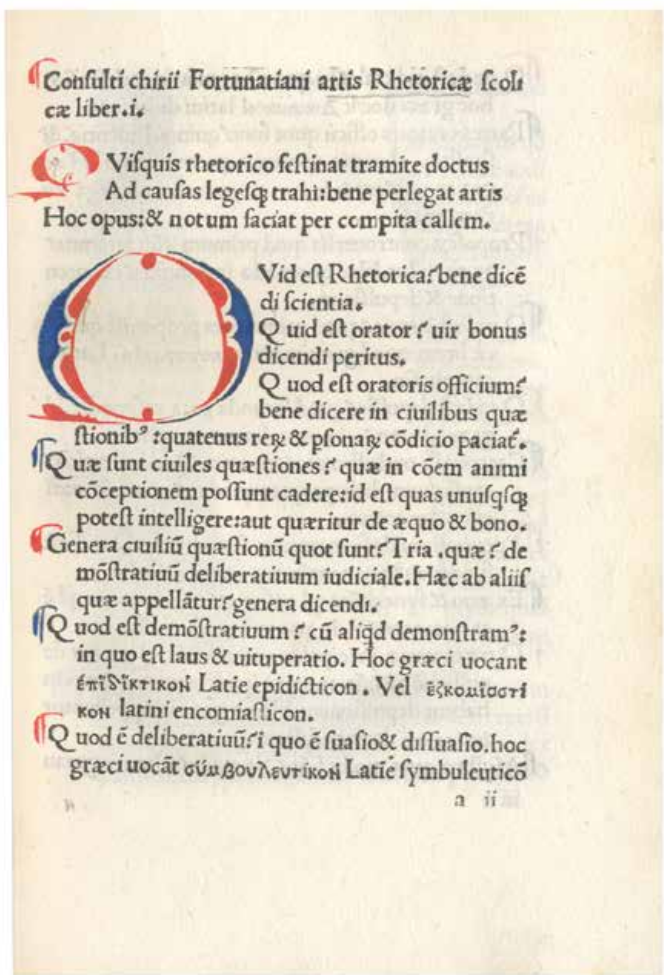 Conſulti chirii Fortunatiani artis Rhetoricæ ſcoli
cæ liber.i.
Q Viſquis rhetorico feſtinat tramite doctus
Ad cauſas legeſqꝫ trahi:bene perlegat artis
Hoc opus:& notum faciat per compita callem.
Q Vid eſt Rhetorica? bene dicē
di ſcientia.
Quid eſt orator? uir bonus
dicendi peritus.
Quod eſt oratoris officium?
bene dicere in ciuilibus quæ
ſtionibꝰ :quatenus reꝝ & pſonaꝝ cōdicio paciat᷑.
Quæ ſunt ciuiles quæſtiones? quæ in cōem animi
cōceptionem poſſunt cadere:id eſt quas unuſqſqꝫ
poteſt intelligere:aut quæritur de æquo & bono.
Genera ciuiliū quæſtionū quot ſunt? Tria .quæ? de
mōſtratiuū deliberatiuum iudiciale. Hæc ab aliiſ
quæ appellātur? genera dicendi.
Quod eſt demōſtratiuum? cū aliqd demonſtramꝰ:
in quo eſt laus & uituperatio. Hoc græci uocant
ἐπιδικτικον Latie epidicticon. Vel ἐξκομισστι
κον latini encomiaſticon.
Quod ē deliberatiuū? i quo ē ſuaſio& diſſuaſio.hoc
græci uocāt σύμβουλευτικον Latie ſymbuleuticō
a ii